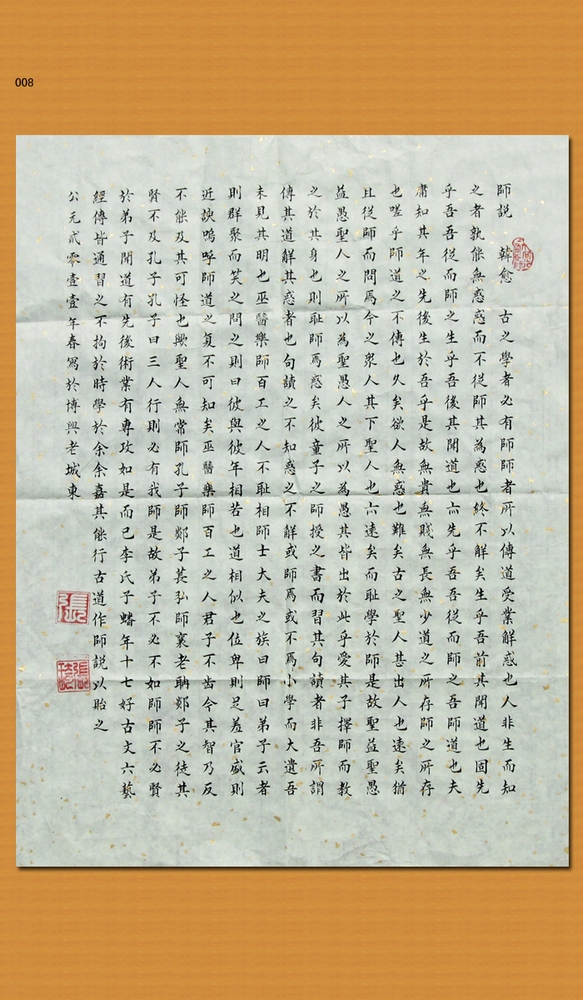 008
師説 韓愈 古之學者必有師師者所以傳道受業解惑也人非生而知
之者孰能無惑惑而不從師其為惑也終不解矣生乎吾前其聞道也固先
乎吾吾從而師之生乎吾後其聞道也亦先乎吾吾從而師之吾師道也夫
庸知其年之先後生於吾乎是故無貴無賤無長無少道之所存師之所存
也嗟乎師道之不傳也久矣欲人無惑也難矣古之聖人其出人也遠矣猶
且從師而問焉今之衆人其下聖人也亦遠矣而耻學於師是故聖益聖愚
益愚聖人之所以為聖愚人之所以為愚其皆出於此乎愛其子擇師而教
之於其身也則耻師焉惑矣彼童子之師授之書而習其句讀者非吾所謂
傳其道解其惑者也句讀之不知惑之不解或師焉或不焉小學而大遺吾
未見其明也巫醫樂師百工之人不耻相師士大夫之族曰師曰弟子云者
則群聚而笑之問之則曰彼與彼年相若也道相似也位卑則足羞官盛則
近諛嗚呼師道之復不可知矣巫醫樂師百工之人君子不齒今其智乃反
不能及其可怪也歟聖人無常師孔子師郯子萇弘師襄老聃郯子之徒其
賢不及孔子孔子曰三人行則必有我師是故弟子不必不如師師不必賢
於弟子聞道有先後術業有專攻如是而已李氏子蟠年十七好古文六藝
經傳皆通習之不拘於時學於余余嘉其能行古道作師説以貽之
公元貳零壹壹年春寫於博興老城東